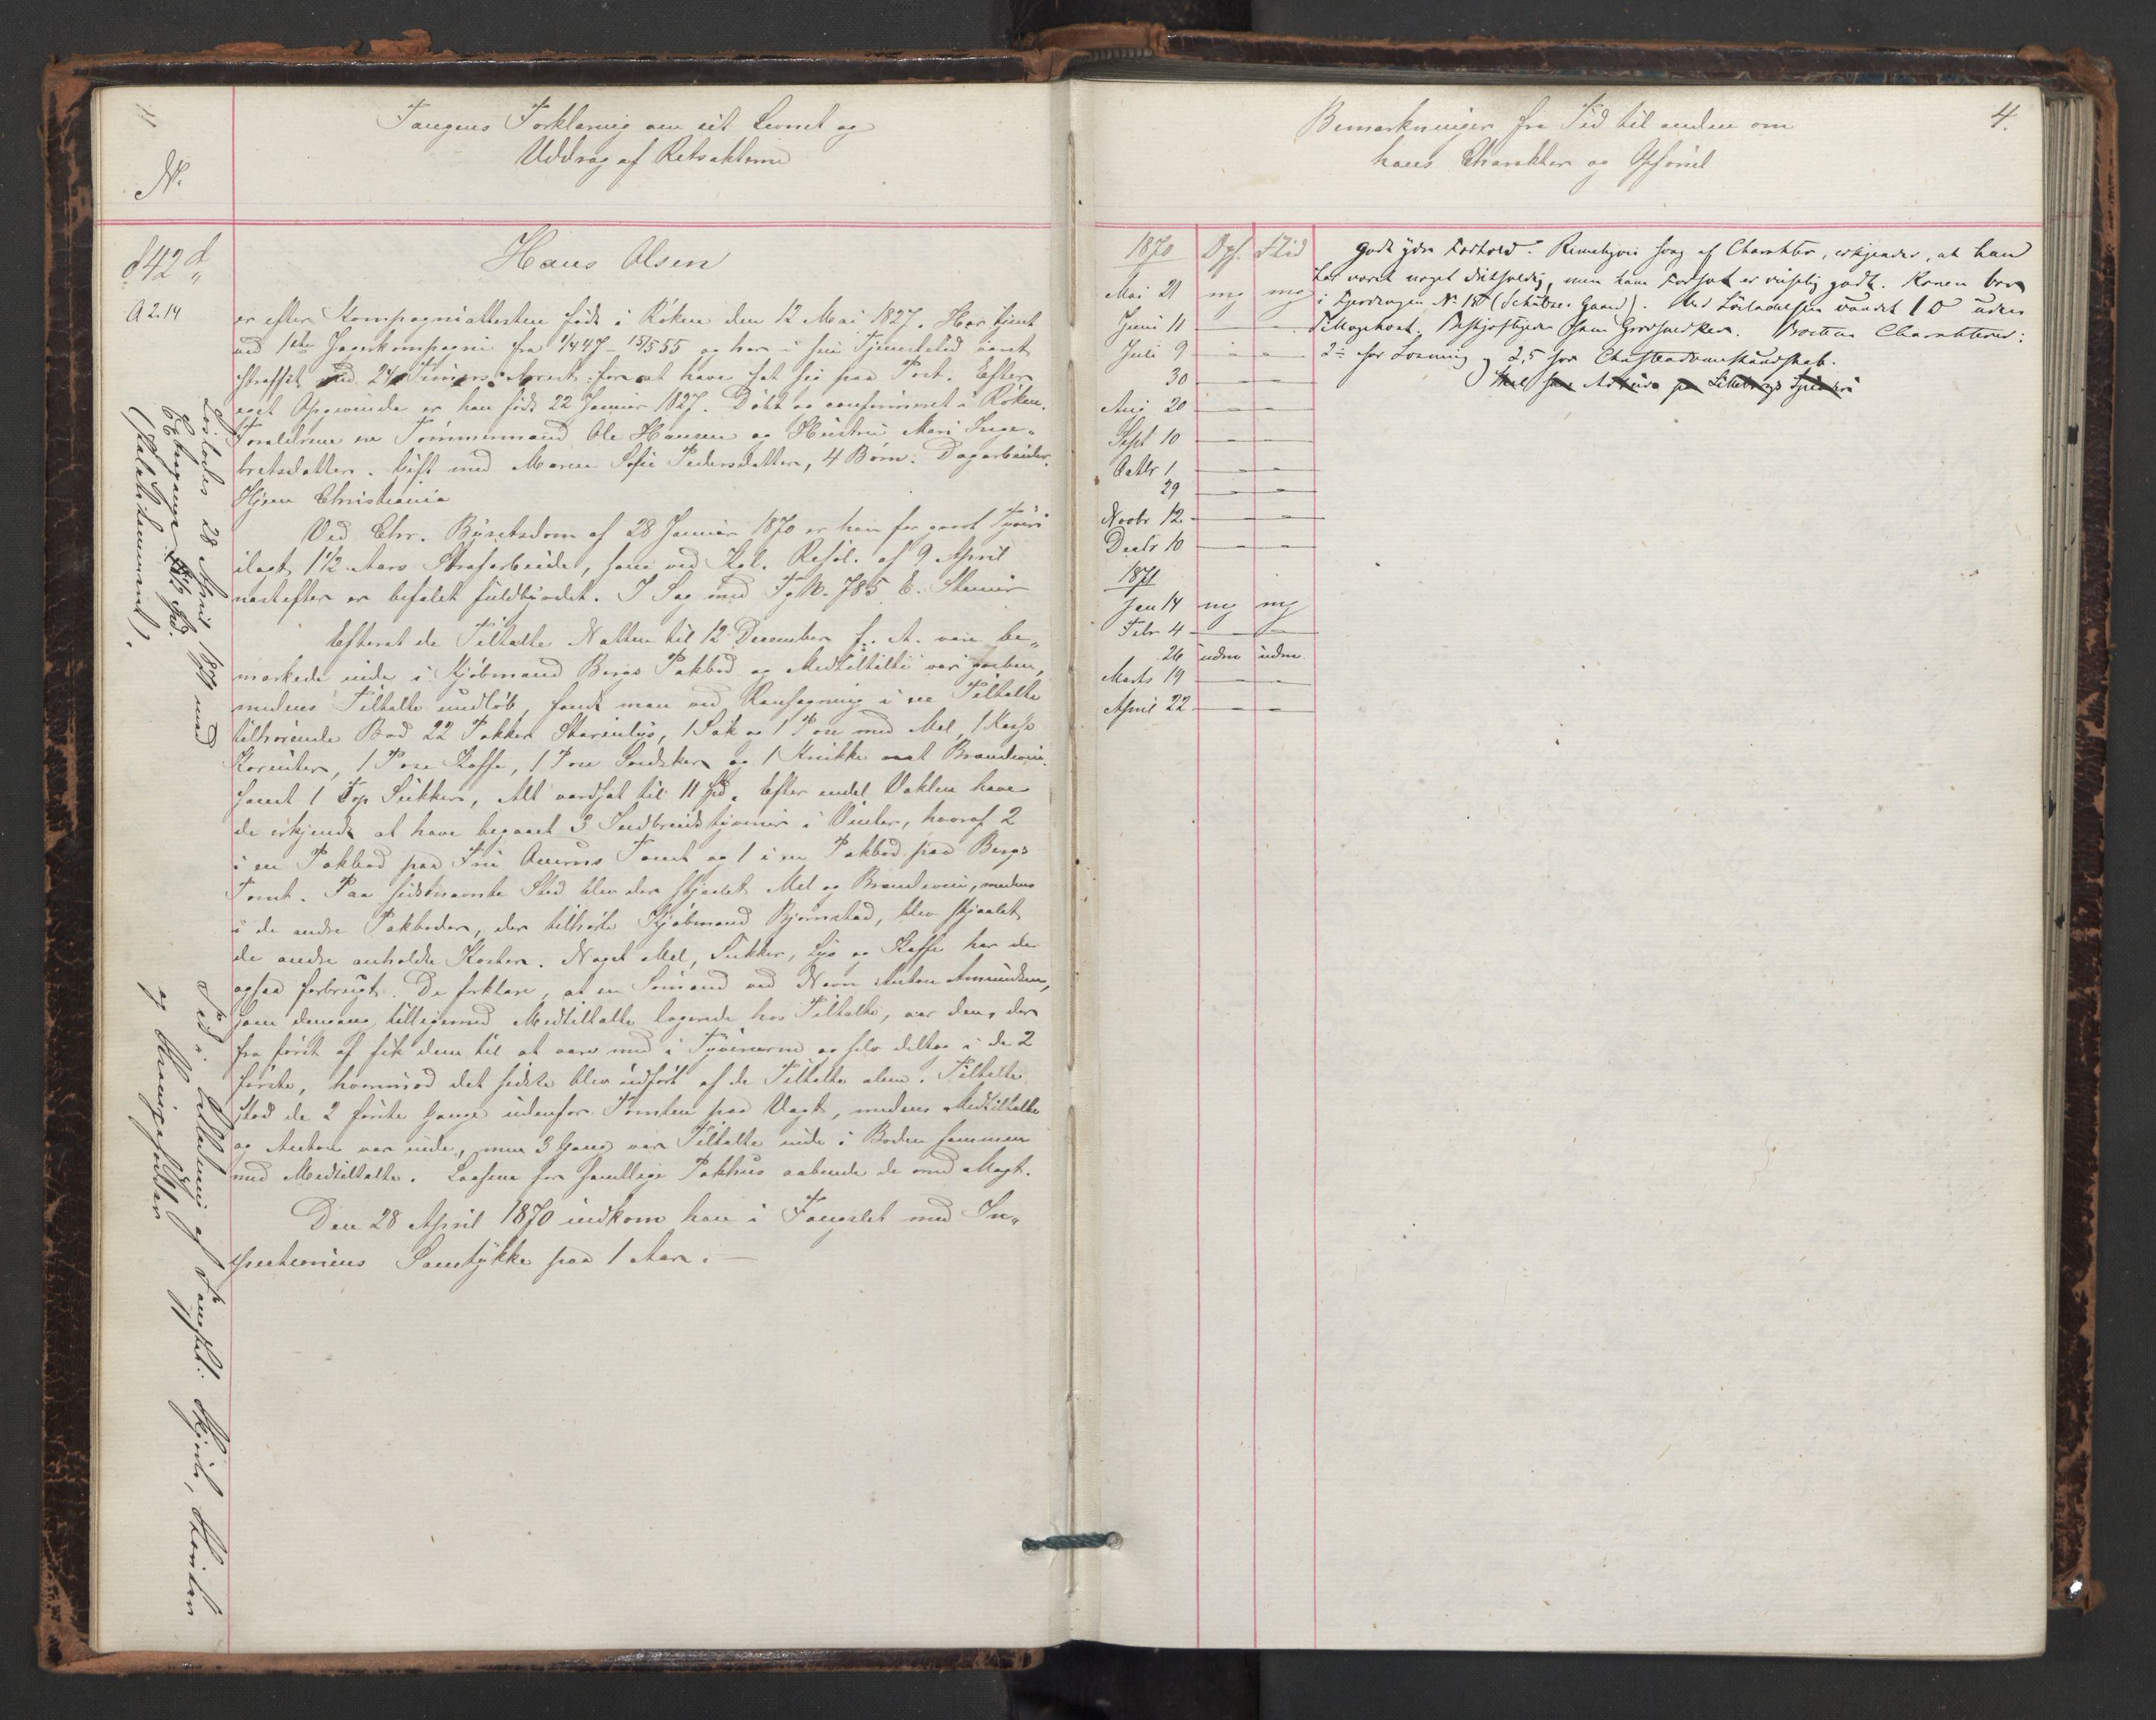 4
Fangens Forklaring om sit Levnet og
Uddrag af Retsakterne
No.
842 d
Hans Olsen
A 2.14
er efter Kompagniattesten født i Röken den 12 Mai 1827. Har tjent
ved 1ste Jægerkompagni fra 1/4 47 - 15/5 55 og har i sin Tjenestetid været
straffet med 24 Timers Arrest for at have sat sig paa Post. Efter
eget Opgivende er han født 22 Januar 1827. Døbt og confirmeret i Röken.
Forældrene ere Tömmermand Ole Hansen og Hustru Mari Inge-
bretsdatter. Gift med Maren Sofie Pedersdatter, 4 Börn. Dagarbeider.
Hjem Christiania
Ved Chr. Byretsdom af 28 Januar 1870 er han for groft Tyveri
ilagt 1 1/2 Aars Strafarbeide, som ved Kgl. Resol. af 9 April
næstefter er befalet fuldbyrdet. I Sag med Fg. No. 785 E. Stener
Efterat de Tiltalte Natten til 12 December f. A. vare be-
mærkede inde i Kjöbmand Bergs Pakbod og Medtiltalte var greben,
medens Tiltalte undlöb, fandt man ved Ransagning i en Tiltalte
tilhörende Bod 22 Pakker Stearinlys, 1 Sæk og 1 Pose med Mel, 1 Kasse
Korinter, 1 Pose Kaffe, 1 Pose og 1 Krukke Brændevin
samt 1 Top Sukker, Alt værdsat til 11 Spd. Efter endel Vaklen have
de erkjendt at have begaaet 3 Indbrudstyverier i Vinter, hvoraf 2
i en Pakbod paa Fru Tomt og 1 i en Pakbod paa Bergs
Tomt. Paa sidstnævnte Sted blev der stjaalet Mel og Brændevin, medens
i de andre Pakboder, der tilhörte Kjöbmand Björnstad, blev stjaalet
de andre anholdte Koster. Noget Mel, Sukker, Lys og Kaffe har de
ogsaa forbrugt. De forklare, at en Sömand ved Navn Anton Amundsen,
som dengang tilligemed Medtiltalte logerede hos Tiltalte, var den, der
fra först af fik dem til at være med i Tyverierne og selv deltog i de 2
förste, hvorimod det sidste blev udfört af de Tiltalte alene. Tiltalte
stod de 2 förste Gange udenfor Tomten paa Vagt, medens Medtiltalte
og Anton var inde, men 3 Gang var Tiltalte inde i Boden sammen
med Medtiltalte. Laasene for samtlige Pakhus aabnede de med Magt.
Den 28 April 1870 indkom han i Fængslet med In-
spectionens Samtykke paa 1 Aar. —
Löslades 28 April 1871 med
Udgangs Spd.
Fik i Löslatelse af Fængslet: Skjorte,
og
4.
Bemærkninger fra Tid til anden om
hans Charakter og Opförsel
1870 Opf. Flid
Mai 21 mg mg
Juni 11 — —
Juli 9 — —
30 — —
Aug 20 — —
Sept 10 — —
Octbr 1 — —
29 — —
Novbr 12 — —
Decbr 10 — —
1871
Jan 14 mg mg
Febr 4 — —
26 udm udm
Marts 19 — —
April 22 — —
Godt ydre Forhold. Rimeligvis svag af Charakter, erkjender, at han
har været noget drikfældig, men hans Forsæt er vistnok godt. Konen bor
i Fjerdingen No. (Schützes Gaard). Ved Lösladelsen
som Grovsmed. Charakterer:
2 for Læsning og 2,5 for Christendomskundskab.
Skal faa Arbeide paa Lilleborgs